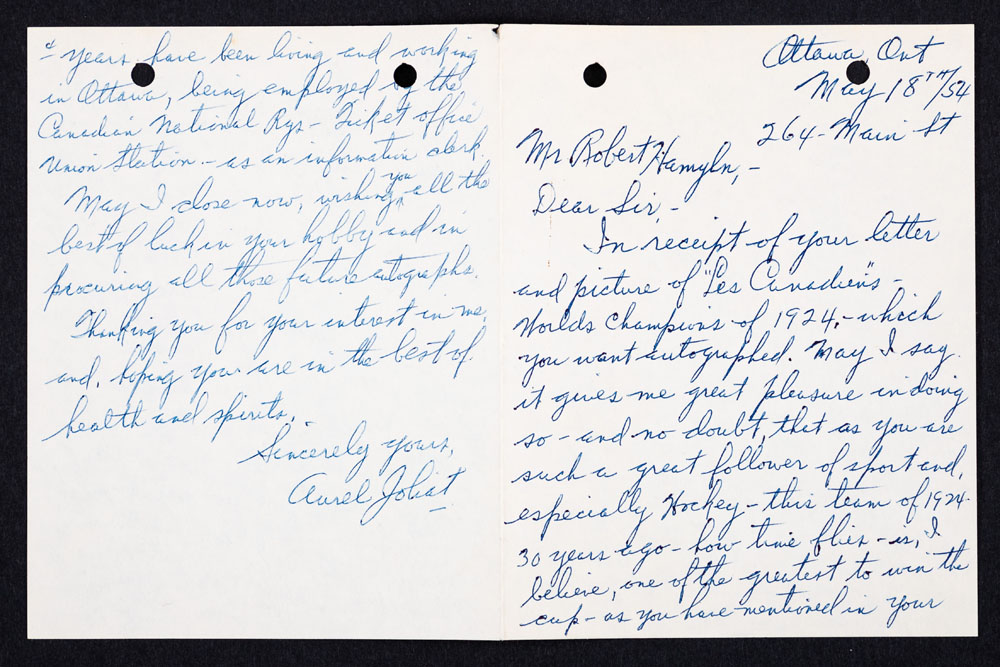 Ottawa, Ont
May 18TH/54
264 - Main St
Mr Robert Hamyln, -
Dear Sir, -
In receipt of your letter
and picture of "Les Canadiens" -
Worlds Champions of 1924, - which
you want autographed. May I say
it gives me great pleasure in doing
so - and no doubt, that as you are
such a great follower of sport and,
especially Hockey - this team of 1924
30 years ago - how time flies - is, I
believe, one of the greatest to win the
cup - as you have mentioned in your
years have been living and working
in Ottawa, being employed by the
Canadian National Rys - Ticket office
Union Station - as an information clerk.
May I close now, wishing you all the
best of luck in your hobby and in
procuring all those future autographs.
Thanking you for your interest in me,
and, hoping you are in the best of
health and spirits.
Sincerely yours,
Aurel Joliat